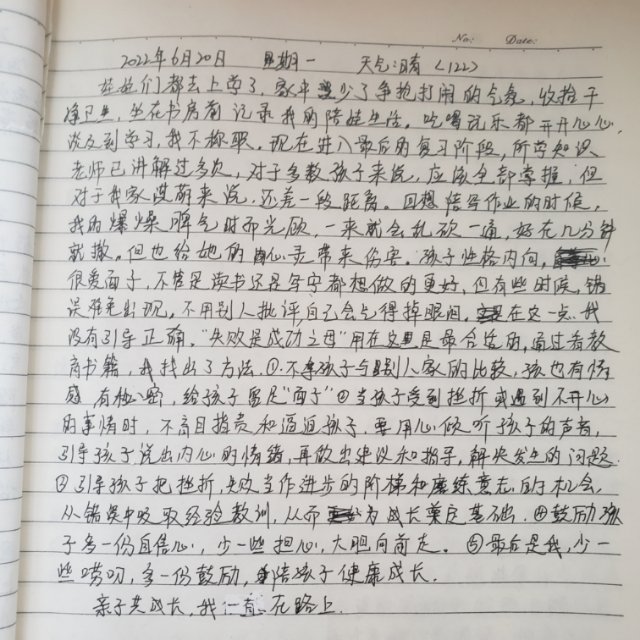 No: Date:
2022年6月20日 星期一 天气:晴 <122>
娃娃们都去上学了,家中少了争抢打闹的气氛,收拾干
净卫生,坐在书房看记录我的陪娃生活。吃喝玩乐都开开心心,
谈及到学习,我不称职。现在进入最后的复习阶段,所学知识
老师已讲解过多次,对于多数孩子来说,应该全部掌握,但
对于我家萌来说,还差一段距离。回想陪写作业的时候,
我的爆燥脾气时而光顾,一来就会乱砍一通,好在几分钟
就撤。但也给她的心灵带来伤害。孩子性格内向,
很爱面子,不管是读书还是写字都想做的更好,但有些时候,错
误难免出现,不用别人批评自己会气得掉眼泪。在这一点,我
没有引导正确,“失败是成功之母”用在这里是最合适的,通过看教
育书籍,我找出了方法。①不拿孩子与别人家的比较,孩也有情
感,有秘密,给孩子留足“面子”②当孩子受到挫折或遇到不开心
的事情时,不盲目指责和逼迫孩子,要用心倾听孩子的声音,
引导孩子说出内心的情绪,再做出建议和指导,解决发生的问题.
③引导孩子把挫折,失败当作进步的阶梯和磨练意志的机会,
从错误中吸取经验教训,从而为成长奠定基础.④鼓励孩
子多一份自信心,少一些担心,大胆向前走。⑤最后是我,少一
些唠叨,多一份鼓励,陪孩子健康成长.
亲子共成长,我一直在路上.